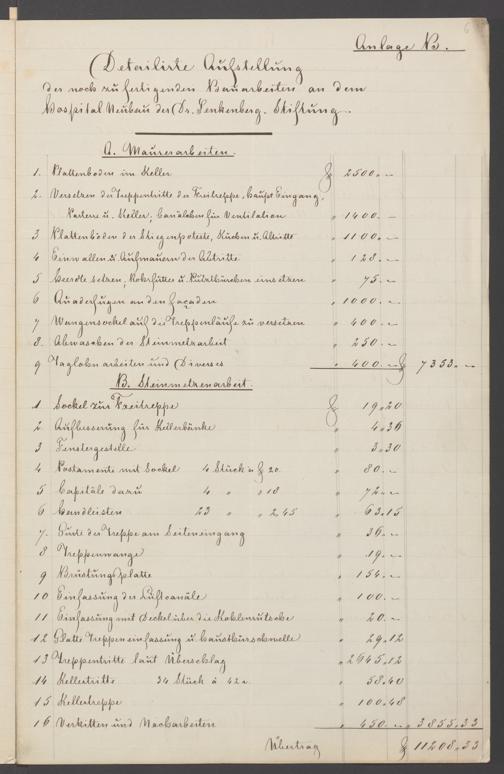 Anlage No.
Detailirte Aufstellung
der noch zu fertigenden Bauarbeiten an dem
Hospital Neubau der Dr. Senkenberg. Stiftung.
A. Maurerarbeiten.
1. Plattenboden im Keller f 2500.—
2. Versetzen der Treppentritte der Freitreppe, Haupt Eingang,
Parterre u. Keller, Canäleben für Ventilation " 1400.—
3 Plattenböden der Stiegenpoteste, Küchen u. Abtritte " 1100.—
4 Einwallen u. Aufmauern der Abtritte " 128.—
5 Heerdte setzen, Rohrfutter u. Putzthürchen einsetzen " 75.—
6 Quaderfugen an den Façaden " 1000.—
7 Wangensockel auf die Treppenläufe zu versetzen " 400.—
8. Abwaschen der Steinmetzarbeit " 250.—
9 Taglohnarbeiten und Diverses " 400.— f 7353.—
B. Steinmetzenarbeit.
1 Sockel zur Freitreppe f 19.20
2 Aufbesserung für Kellerbänke " 4.36
3 Fenstergestelle " 3.30
4 Postamente mit Sockel 4 Stück à f 20. " 80.—
5 Capitäle dazu 4 " " 18 " 72.—
6 Handleisten 23 " " 2.45 " 63.15
7. Gurte der Treppe am Seiteneingang " 36.—
8 Treppenwange " 19.—
9 Brüstungsplatte " 154.—
10 Einfassung der Luftcanäle " 100.—
11 Einfassung mit Deckel über die Kohlenrutsche " 20.—
12 Glatte Treppeneinfassung u. Hausthürschwelle " 29.12
13 Treppentritte laut Überschlag " 2645.12
14 Kellertritte 34 Stück à 42x " 58.40
15 Kellertreppe " 100.48
16 Verkitten und Nacharbeiten " 450.— " 3855.33
Übertrag f 11208.33